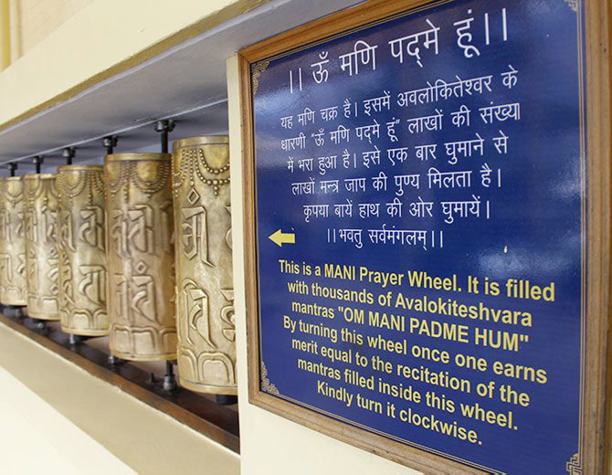 ।। ॐ मणि पद्मे हूं ।।
यह मणि चक्र है। इसमें अवलोकितेश्वर के
धारणी "ॐ मणि पद्मे हूं" लाखों की संख्या
में भरा हुआ है। इसे एक बार घुमाने से
लाखों मन्त्र जाप की पुण्य मिलता है।
कृपया बायें हाथ की ओर घुमायें।
।। भवतु सर्वमंगलम् ।।
This is a MANI Prayer Wheel. It is filled
with thousands of Avalokiteshvara
mantras "OM MANI PADME HUM"
By turning this wheel once one earns
merit equal to the recitation of the
mantras filled inside this wheel.
Kindly turn it clockwise.